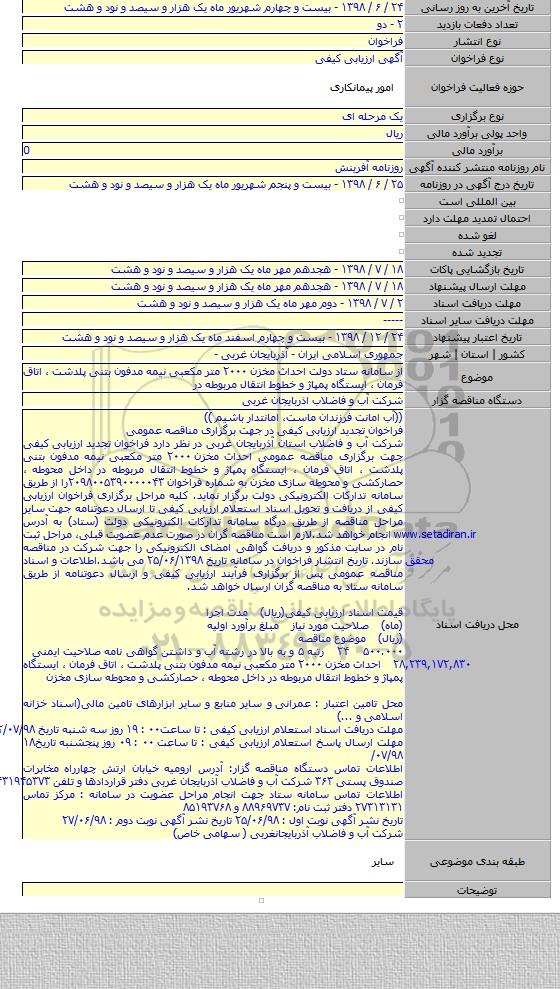 تاریخ آخرین به روز رسانی ۲۴ / ۶ / ۱۳۹۸ - بیست و چهارم شهریور ماه یک هزار و سیصد و نود و هشت
تعداد دفعات بازدید ۲ - دو
نوع انتشار فراخوان
نوع فراخوان آگهی ارزیابی کیفی
حوزه فعالیت فراخوان امور پیمانکاری
نوع برگزاری یک مرحله ای
واحد پولی برآورد مالی ریال
برآورد مالی 0
نام روزنامه منتشر کننده آگهی روزنامه آفرینش
تاریخ درج آگهی در روزنامه ۲۵ / ۶ / ۱۳۹۸ - بیست و پنجم شهریور ماه یک هزار و سیصد و نود و هشت
بین المللی است
احتمال تمدید مهلت دارد
لغو شده
تجدید شده
تاریخ بازگشایی پاکات ۱۸ / ۷ / ۱۳۹۸ - هجدهم مهر ماه یک هزار و سیصد و نود و هشت
مهلت ارسال پیشنهاد ۱۸ / ۷ / ۱۳۹۸ - هجدهم مهر ماه یک هزار و سیصد و نود و هشت
مهلت دریافت اسناد ۲ / ۷ / ۱۳۹۸ - دوم مهر ماه یک هزار و سیصد و نود و هشت
مهلت دریافت سایر اسناد -----
تاریخ اعتبار پیشنهاد ۲۴ / ۱۲ / ۱۳۹۸ - بیست و چهارم اسفند ماه یک هزار و سیصد و نود و هشت
کشور | استان | شهر جمهوری اسلامی ایران - آذربایجان غربی -
موضوع از سامانه ستاد دولت احداث مخزن ۲۰۰۰ متر مکعبی نیمه مدفون بتنی پلدشت ، اتاق
فرمان ، ایستگاه پمپاژ و خطوط انتقال مربوطه در
دستگاه مناقصه گزار شرکت آب و فاضلاب آذربایجان غربی
محل دریافت اسناد
((آب امانت فرزندان ماست، امانتدار باشیم ))
فراخوان تجدید ارزیابی کیفی در جهت برگزاری مناقصه عمومی
شرکت آب و فاضلاب استان آذربایجان غربی در نظر دارد فراخوان تجدید ارزیابی کیفی
جهت برگزاری مناقصه عمومی احداث مخزن ۲۰۰۰ متر مکعبی نیمه مدفون بتنی
پلدشت ، اتاق فرمان ، ایستگاه پمپاژ و خطوط انتقال مربوطه در داخل محوطه ،
حصارکشی و محوطه سازی مخزن به شماره فراخوان ۲۰۹۸۰۰۵۳۹۰۰۰۰۰۴۳را از طریق
سامانه تدارکات الکترونیکی دولت برگزار نماید. کلیه مراحل برگزاری فراخوان ارزیابی
کیفی از دریافت و تحویل اسناد استعلام ارزیابی کیفی تا ارسال دعوتنامه جهت سایر
مراحل مناقصه از طریق درگاه سامانه تدارکات الکترونیکی دولت (ستاد) به آدرس
www.setadiran.ir انجام خواهد شد.لازم است مناقصه گران در صورت عدم عضویت قبلی، مراحل ثبت
نام در سایت مذکور و دریافت گواهی امضای الکترونیکی را جهت شرکت در مناقصه
محقق سازند. تاریخ انتشار فراخوان در سامانه تاریخ ۲۵/۰۶/۱۳۹۸ می باشد.اطلاعات و اسناد
مناقصه عمومی پس از برگزاری فرآیند ارزیابی کیفی و ارسال دعوتنامه از طریق
سامانه ستاد به مناقصه گران ارسال خواهد شد.
قیمت اسناد ارزیابی کیفی(ریال) مدت اجرا
(ماه) صلاحیت مورد نیاز مبلغ برآورد اولیه
(ریال) موضوع مناقصه
۵۰۰.۰۰۰ ۲۴ رتبه ۵ و به بالا در رشته آب و داشتن گواهی نامه صلاحیت ایمنی
۲۸,۲۳۹,۱۷۲,۸۳۰ احداث مخزن ۲۰۰۰ متر مکعبی نیمه مدفون بتنی پلدشت ، اتاق فرمان ، ایستگاه
پمپاژ و خطوط انتقال مربوطه در داخل محوطه ، حصارکشی و محوطه سازی مخزن
محل تامین اعتبار : عمرانی و سایر منابع و سایر ابزارهای تامین مالی(اسناد خزانه
اسلامی و ...)
مهلت دریافت اسناد استعلام ارزیابی کیفی : تا ساعت۰۰ : ۱۹ روز سه شنبه تاریخ
مهلت ارسال پاسخ استعلام ارزیابی کیفی : تا ساعت ۰۰ : ۰۹ روز پنجشنبه تاریخ۱۸
/۰۷/۹۸
اطلاعات تماس دستگاه مناقصه گزار: آدرس ارومیه خیابان ارتش چهارراه مخابرات
صندوق پستی ۳۶۳ شرکت آب و فاضلاب آذربایجان غربی دفتر قراردادها و تلفن
اطلاعات تماس سامانه ستاد جهت انجام مراحل عضویت در سامانه : مرکز تماس
۲۷۳۱۳۱۳۱ دفتر ثبت نام: ۸۸۹۶۹۷۳۷ و ۸۵۱۹۳۷۶۸
تاریخ نشر آگهی نوبت اول : ۲۵/۰۶/۹۸ تاریخ نشر آگهی نوبت دوم : ۲۷/۰۶/۹۸
شرکت آب و فاضلاب آذربایجانغربی ( سهامی خاص)
طبقه بندی موضوعی سایر
توضیحات